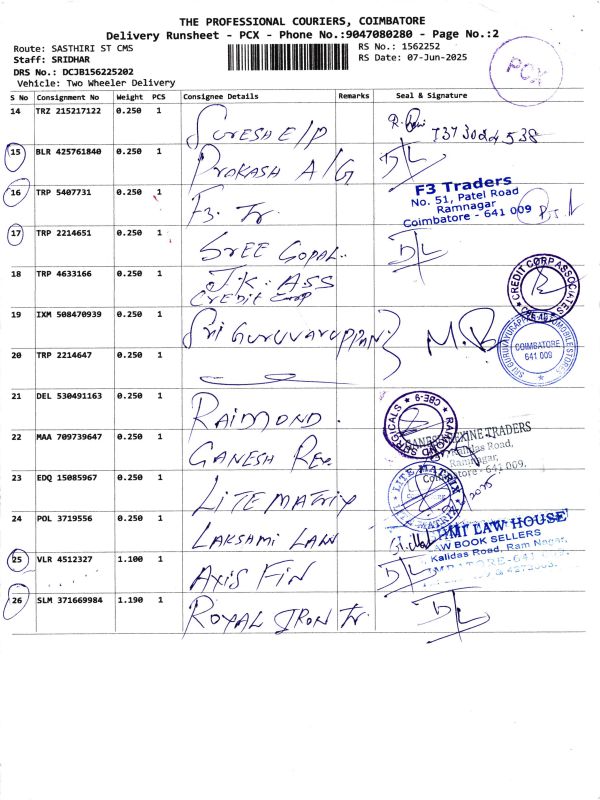 THE PROFESSIONAL COURIERS, COIMBATORE
Delivery Runsheet - PCX - Phone No.:9047080280 - Page No.:2
Route: SASTHIRI ST CMS
RS No.: 1562252
Staff: SRIDHAR
RS Date: 07-Jun-2025
DRS No.: DCJB156225202
Vehicle: Two Wheeler Delivery
PCX
S No Consignment No Weight PCS Consignee Details Remarks Seal & Signature
14 TRZ 215217122 0.250 1 SURESH E/P
15 BLR 425761840 0.250 1 PROKASH A/G D/L
16 TRP 5407731 0.250 1 F3. Tr.
F3 Traders
No. 51, Patel Road
Ramnagar
Coimbatore - 641 009
17 TRP 2214651 0.250 1 SREE GOPAL.. D/L
18 TRP 4633166 0.250 1 J.K. ASS
CREDIT Corp
CREDIT CORP ASSOCIATES
19 IXM 508470939 0.250 1 SRI GURUVAYUPPAN M.B
COIMBATORE
641 009
20 TRP 2214647 0.250 1
21 DEL 530491163 0.250 1 RAIMOND.
RAIMOND SURGICALS * CBE-9 *
22 MAA 709739647 0.250 1 GANESH Rex.
GANESH REXINE TRADERS
Kalidas Road,
Ramnagar,
Coimbatore - 641 009.
23 EDQ 15085967 0.250 1 LITEMATRIX
LITE MATRIX
24 POL 3719556 0.250 1 LAKSHMI LAW
LAW HOUSE
LAW BOOK SELLERS
Kalidas Road, Ram Nagar,
25 VLR 4512327 1.100 1 AXIS FIN D/L
26 SLM 371669984 1.190 1 ROYAL IRON Tr. D/L